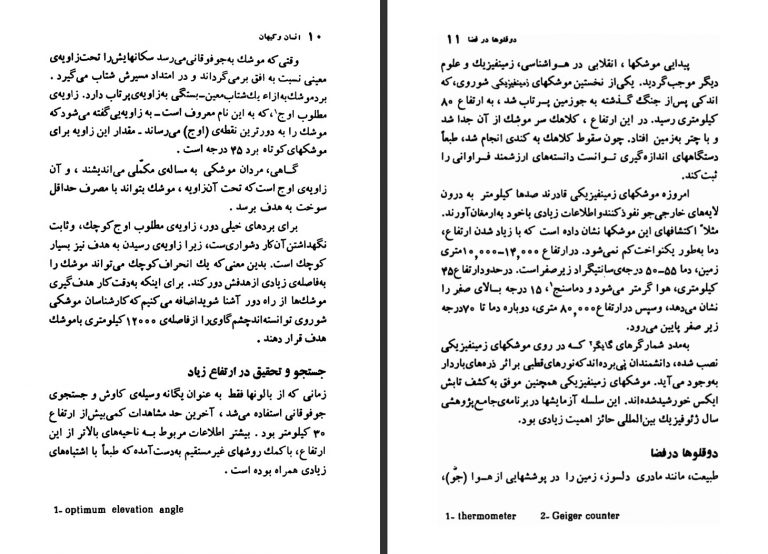 ۱۰ انسان و کیهان
وقتی که موشك به‌جو فوقانی می‌رسد سکانهایش‌را تحت زاویه‌ی
معینی نسبت به افق برمی‌گرداند و در امتداد مسیرش شتاب می‌گیرد .
برد موشك به‌ازاء یك‌شتاب‌معین-بستگی به‌زاویه‌ی پرتاب دارد. زاویه‌ی
مطلوب اوج¹، که به این نام معروف است - به زاویه‌یی گفته می‌شود که
موشك را به دورترین نقطه‌ی (اوج) می‌رساند - مقدار این زاویه برای
موشکهای‌کوتاه برد ۴۵ درجه است .
گــاهی، مردان موشکی به مساله‌ی مکمّلی می‌اندیشند ، و آن
زاویه‌ی اوج است‌که تحت آن‌زاویه ، موشك بتواند با مصرف حداقل
سوخت به هدف برسد .
برای بردهای خیلی دور، زاویه‌ی مطلوب اوج‌کوچك، و ثابت
نگهداشتن‌آن‌کار دشواری‌ست، زیرا زاویه‌ی رسیدن به هدف نیز بسیار
کوچك است. بدین معنی‌که یك انحراف‌کوچك می‌تواند موشك را
به‌فاصله‌ی زیادی ازهدفش دور کند. برای اینکه به‌دقت‌کار هدف‌گیری
موشك‌ها از راه دور آشنا شوید اضافه می‌کنیم‌که کارشناسان موشکی
شوروی توانسته‌اند چشم‌گاوی‌را از فاصله‌ی ۱۲۰۰۰ کیلومتری با موشك
هدف قرار دهند .
جستجو و تحقیق در ارتفاع زیاد
زمانی که از بالونها فقط به عنوان یگانه وسیله‌ی کاوش و جستجوی
جو فوقانی استفاده می‌شد ، آخرین حد مشاهدات کمی‌بیش از ارتفاع
۳۰ کیلومتر بود . بیشتر اطلاعات مربوط بــه ناحیه‌های بالاتر از این
ارتفاع، با کمك روشهای غیرمستقیم به‌دست‌آمده که طبعاً با اشتباه‌های
زیادی همراه بوده است .
1- optimum elevation angle
دوقلوها در فضا ۱۱
پیدایی موشکها ، انقلابی در هــواشناسی، زمینفیزیك و علوم
دیگر موجب‌گردید. یکی‌از نخستین موشکهای زمینفیزیکی شوروی، که
اندکی پس‌از جنگ گذشته به جوزمین پــرتاب شد ، به ارتفاع ۸۰
کیلومتری رسید. در این ارتفاع ، کلاهك سر موشك از آن جدا شد
و با چتر به‌زمین افتاد. چون سقوط کلاهك به کندی انجام شد، طبعاً
دستگاههای اندازه‌گیری توانست دانسته‌های ارزشمند فراوانی را
ثبت‌کند.
امروزه موشکهای زمینفیزیکی قادرند صدها کیلومتر به درون
لایه‌های خارجی‌جو نفوذ کنند و اطلاعات زیادی با خود به‌ارمغان‌آورند.
مثلاً اکتشافهای این موشکها نشان داده است که با زیاد شدن ارتفاع،
دما به‌طور یکنواخت کم نمی‌شود. در ارتفاع ۱۴,۰۰۰-۱۰,۰۰۰ متری
زمین، دما ۵۵-۵۰ درجه‌ی سانتیگراد زیرصفر است. در حدود ارتفاع ۴۵
کیلومتری، هوا گرمتر می‌شود و دماسنج¹، ۱۵ درجه بالای صفر را
نشان می‌دهد، وسپس درارتفاع ۸۰,۰۰۰ متری، دوباره دما تا ۷۰ درجه
زیر صفر پایین می‌رود.
به‌مدد شمارگرهای گایگر² کــه در روی موشکهای زمینفیزیکی
نصب شده، دانشمندان پی‌برده‌اندکه نورهای‌قطبی بر اثر ذره‌های‌باردار
به‌وجود می‌آید. موشکهای زمینفیزیکی همچنین موفق به‌کشف تابش
ایکس خورشید شده‌اند. این سلسله آزمایشها در برنامه‌ی جامع پژوهشی
سال ژئوفیزیک بین‌المللی حائز اهمیت زیادی بود.
دوقلوها درفضا
طبیعت، مانند مادری دلسوز، زمین را در پوششهایی از هــوا (جوّ)،
1- thermometer 2- Geiger counter